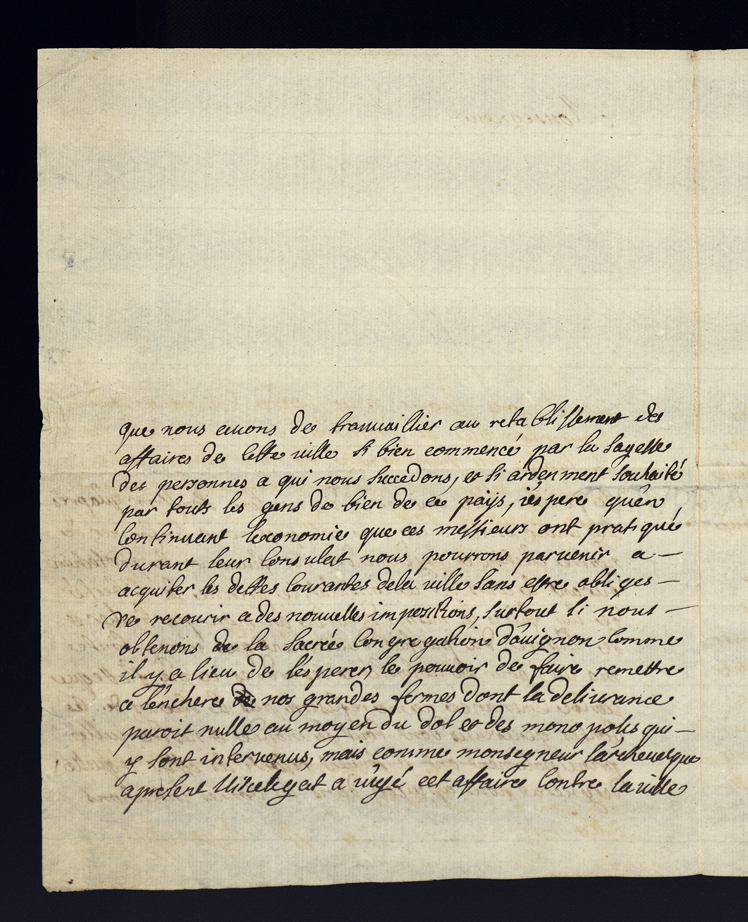 que nous auons de trauaillier au retablissement des
affaires de cette uille si bien commencé par la sagesse
des personnes a qui nous succedons, et si ardenment souhaité
par touts les gens de bien de ce païs, i'espere qu'en
continuant l'economie que ces messieurs ont pratiqué
durant leur consulat nous pourrons paruenir a
acquiter les dettes courantes dela uille sans estre obliges
de recourir a des nouuelles impositions, surtout si nous
obtenons de la sacrée congregation d'auignon comme
il y a lieu de l'esperer, le pouuoir de faire remettre
a l'enchere de nos grandes fermes dont la deliurance
paroit nulle au moyen du dol et des monopoles qui
y sont interuenus, mais comme monsegneur l'archeuesque
apresent Uicelegat a iugé cet affaire contre la uille